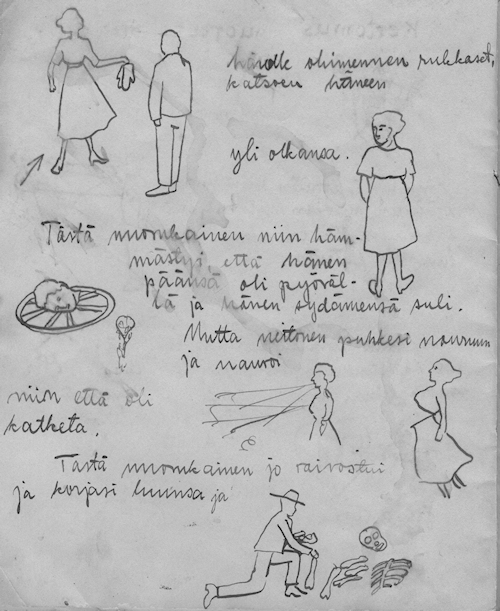 hänelle ohimennen rukkaset,
katsoen häneen
yli olkansa.
Tästä nuorukainen niin häm-
mästyi, että hänen
päänsä oli pyöräl-
lä ja hänen sydämensä suli.
Mutta neitonen puhkesi nauruun
ja nauroi
niin että oli
katketa.
Tästä nuorukainen jo raivostui
ja korjasi luunsa ja